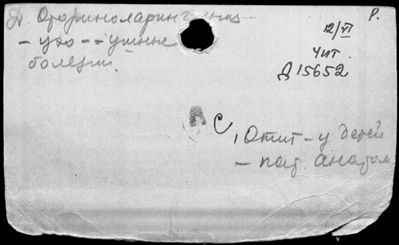 Р.
12/VI
— ухо — ушные
болезни.
Чит.
Д 15652
С
Отит — у детей
— пат. анатом